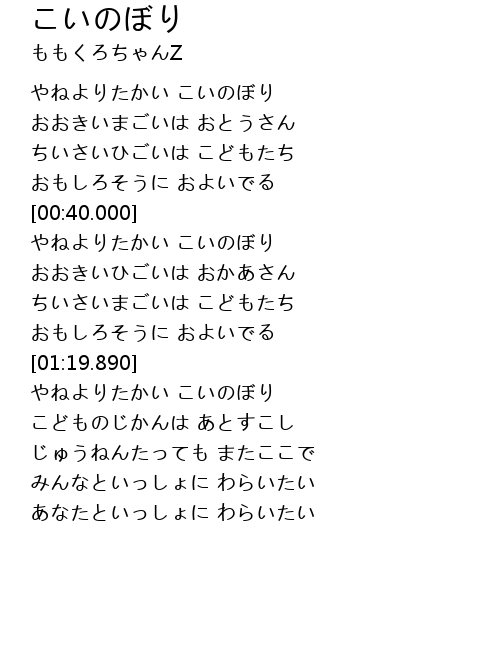 こいのぼり
ももくろちゃんZ
やねよりたかい こいのぼり
おおきいまごいは おとうさん
ちいさいひごいは こどもたち
おもしろそうに およいでる
[00:40.000]
やねよりたかい こいのぼり
おおきいひごいは おかあさん
ちいさいまごいは こどもたち
おもしろそうに およいでる
[01:19.890]
やねよりたかい こいのぼり
こどものじかんは あとすこし
じゅうねんたっても またここで
みんなといっしょに わらいたい
あなたといっしょに わらいたい